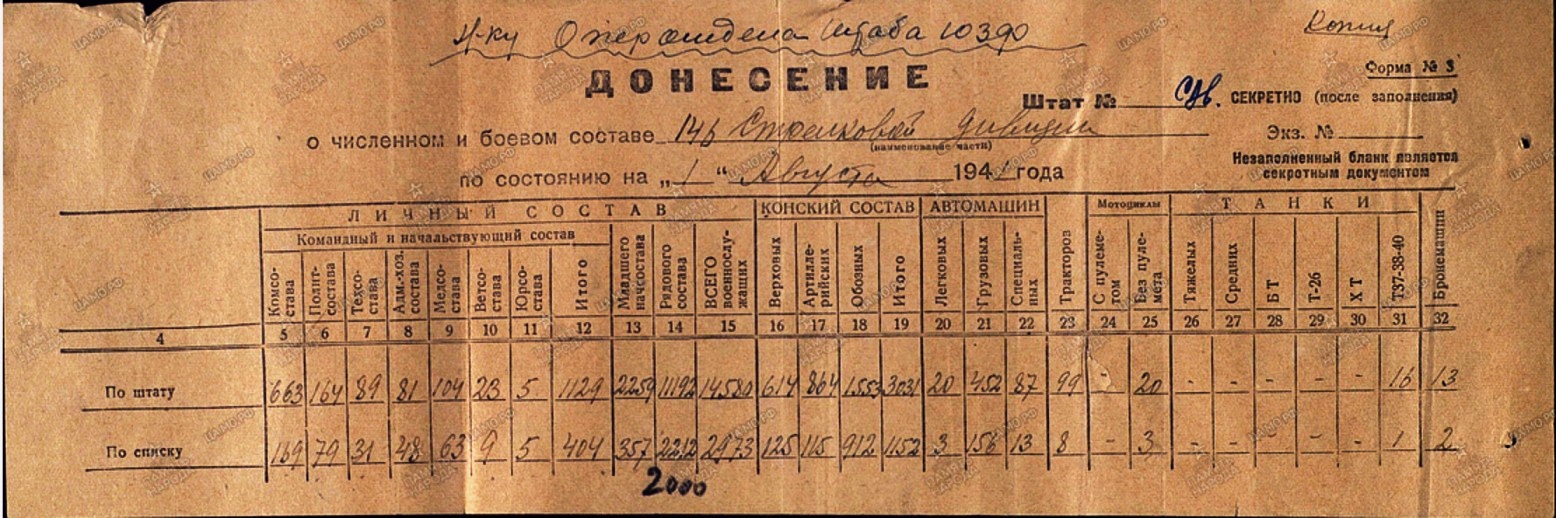 Н-ку Опер отдела Штаба ЮЗФ
Копия
ДОНЕСЕНИЕ
Форма № 3
Штат № СДв. СЕКРЕТНО (после заполнения)
о численном и боевом составе 146 Стрелковой дивизии
(наименование части)
Экз. №
по состоянию на „1“ Августа 1941 года
Незаполненный бланк является
секретным документом
ЛИЧНЫЙ СОСТАВ КОНСКИЙ СОСТАВ АВТОМАШИН Тракторов Мотоциклы ТАНКИ Бронемашин
Командный и начальствующий состав
Комсо-става Полит-состава Техсо-става Адм.-хоз. состава Медсо-става Ветсо-става Юрсо-става Итого Младшего начсостава Рядового состава ВСЕГО военнослу-жащих Верховых Артилле-рийских Обозных Итого Легковых Грузовых Специаль-ных С пулеме-том Без пуле-мета Тяжелых Средних БТ Т-26 ХТ Т37-38-40
4 5 6 7 8 9 10 11 12 13 14 15 16 17 18 19 20 21 22 23 24 25 26 27 28 29 30 31 32
По штату 663 164 89 81 104 23 5 1129 2259 11192 14580 614 864 1553 3031 20 452 87 99 - 20 - - - - - 16 13
По списку 169 79 31 48 63 9 5 404 357 2212 2973 125 115 912 1152 3 156 13 8 - 3 - - - - - 1 2
2000